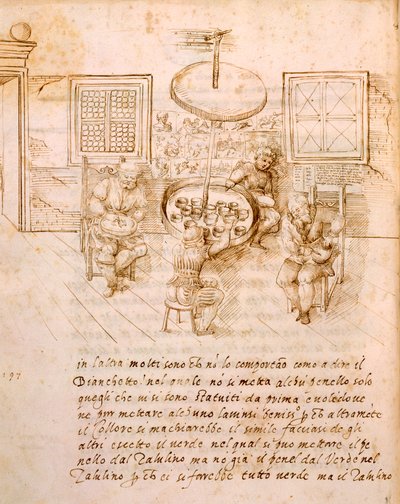 in l'altra molti sono ch nō lo comportāo come a dire il
Bianchetto nel quale nō si metta alchū penello solo
quegli che vi si sono statuiti da prima e volēdove
ne pur mettare alchuno lavinsi benisſ° p ch altramēte
il collore si machiarebbe il simile facciasi de gli
altri eccetto il verde nel qual si puo mettare il pe
nello dal Zalulino ma nō gia il penel dal Verde nel
Zalulino p ch ei si farebbe tutto verde ma il Zalulino
197